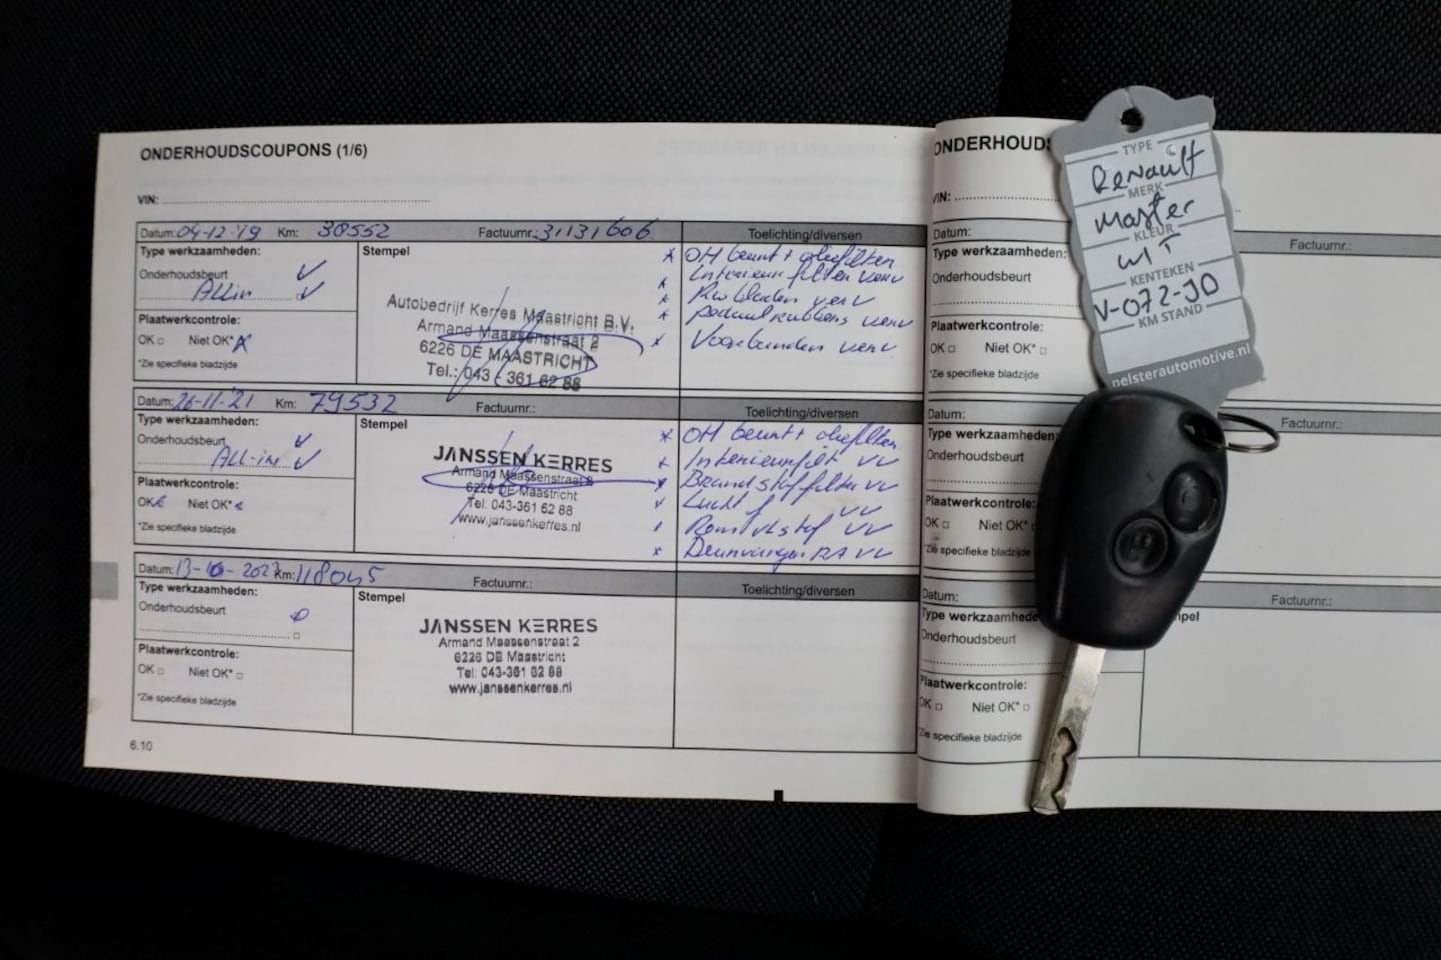 ONDERHOUDSCOUPONS (1/6)
VIN:
Datum: 04-12-'19 Km: 38552 Factuurnr.: 31131606 Toelichting/diversen
Type werkzaamheden:
Onderhoudsbeurt
All in
Plaatwerkcontrole:
OK Niet OK*
*Zie specifieke bladzijde
Stempel
Autobedrijf Kerres Maastricht B.V.
Armand Maassenstraat 2
6226 DE MAASTRICHT
Tel.: 043 - 361 62 88
OH beurt + oliefilter
Interieur filter verv
verv
verv
Voorbanden verv
Datum: 26-11-'21 Km: 79532 Factuurnr.: Toelichting/diversen
Type werkzaamheden:
Onderhoudsbeurt
ALL-in
Plaatwerkcontrole:
OK Niet OK*
*Zie specifieke bladzijde
Stempel
JANSSEN KERRES
Armand Maassenstraat 2
6226 DE Maastricht
Tel: 043-361 62 88
www.janssenkerres.nl
OH beurt + oliefilter
Interieurfilt VV
Brandstoffilter VV
VV
VV
RA VV
Datum: Km: 118045 Factuurnr.: Toelichting/diversen
Type werkzaamheden:
Onderhoudsbeurt
Plaatwerkcontrole:
OK Niet OK*
*Zie specifieke bladzijde
Stempel
JANSSEN KERRES
Armand Maassenstraat 2
6226 DE Maastricht
Tel: 043-361 62 88
www.janssenkerres.nl
6.10
ONDERHOUDS
VIN:
Datum: Factuurnr.:
Type werkzaamheden:
Onderhoudsbeurt
Plaatwerkcontrole:
OK Niet OK*
*Zie specifieke bladzijde
Datum: Factuurnr.:
Type werkzaamheden:
Onderhoudsbeurt
Plaatwerkcontrole:
OK Niet OK*
*Zie specifieke bladzijde
Datum: Factuurnr.:
Type werkzaamhede
Onderhoudsbeurt
Plaatwerkcontrole:
OK Niet OK*
*Zie specifieke bladzijde
mpel
TYPE
Renault
MERK
Master
KLEUR
WIT
KENTEKEN
V-072-JD
KM STAND
pelsterautomotive.nl